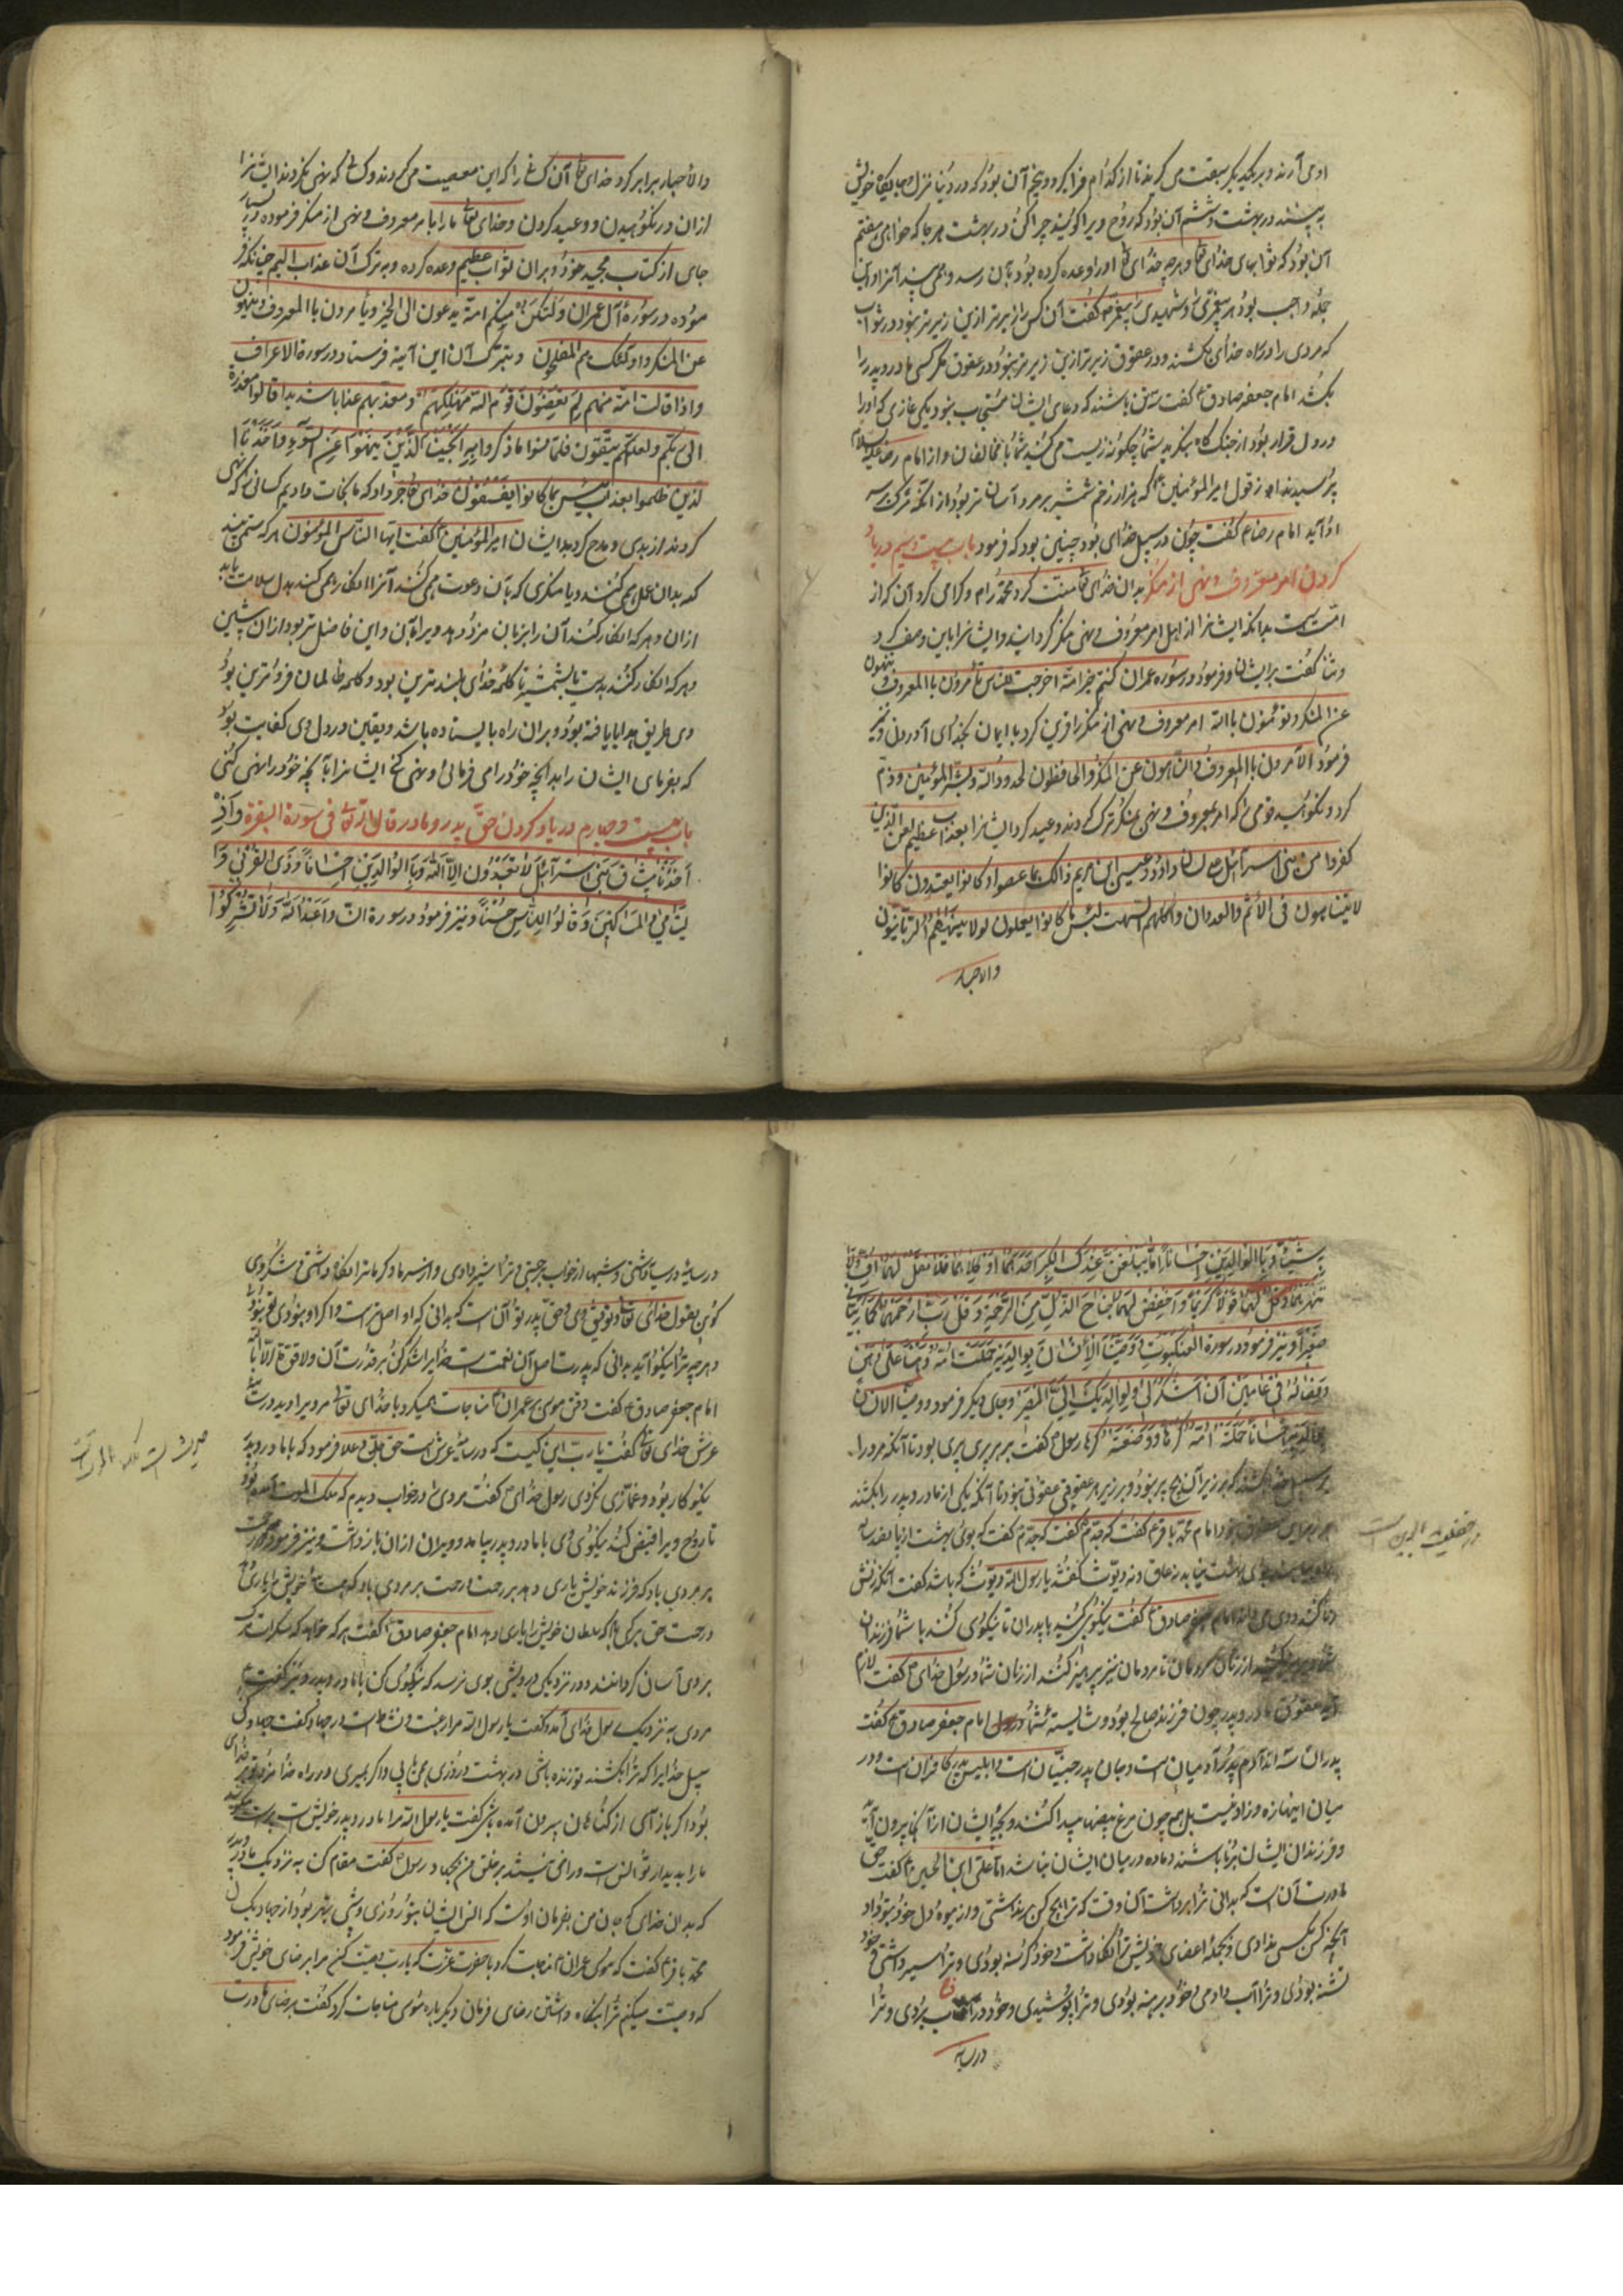 اوی آرند و بر یکدیگر سبقت می گیرند تا از کدام فرا گیرد و پنجم آن بود که در دنیا منزل و جایگاه خویش
به بیند در بهشت و ششم آن بود که روح ویرا گویند چرا کن در بهشت هر جا که خواهی هفتم
آن بود که ثوابهای خدای تعا و هرچه خدای تعا او را وعده کرده بود بآن رسد
جمله واجب بود هر پیغمبری و شهیدی را پیغمبر گفت آن کس را زبر تر ازین زبر تر نبود در ثواب
که مردی را در راه خدای بکشند و در عقوق زیر تر ازین زیر تر نبود و در عقوق مگر کسی مادر و پدر را
بکشد امام جعفر صادق ع گفت سه تن باشند که دعای ایشان مستجاب بنود یکی غازی که او را
در دل قرار بود از جنگ گاه بنگرید شما چگونه زیست می کنید شما با مخالفان و از امام رضا علیه السلام
پرسیدند از قول امیر المؤمنین که هزار زخم شمشیر بر مرد آسان تر بود از آنکه مرگ بر سر
او آید امام رضا ع گفت چون در سبیل خدای بود چنین بود که فرمود باب بیست و سیم در یاد
کردن امر معروف و نهی از منکر بدان خدای تعا منت کرد محمد را م و گرامی کرد آن کر از
امت ست بدانکه ایشانرا از اهل امر معروف و نهی منکر گردانید و ایشانرا باین وصف کرد
و ثنا گفت بر ایشان و فرمود در سوره عمران کنتم خیر امة اخرجت للناس تأمرون بالمعروف و تنهون
عن المنکر و تؤمنون باالله امر معروف و نهی از منکر را قرین کرد با ایمان بخدای آوردن و نیز
فرمود الآمرون باالمعروف والناهون عن المنکر والحافظون لحدود الله و بشر المؤمنین و ذم
کرد و نکوهید قومی را که امر بمعروف و نهی منکر ترک کردند و وعید کرد ایشانرا بعذاب عظیم لعن الذین
کفروا من بنی اسرآئیل علی لسان داود و عیسی ابن مریم ذالک بما عصوا و کانوا یعتدون کانوا
لا یتناهون فی الأثم والعدوان واکلهم السحت لبئس ما کانوا یعملون لولا ینهیهم الربانیون
والاحبار
والاحبار برابر کرد خدای تعا آن کس را که این معصیت می کردند و کسانی که نهی نکردند ایشانرا
ازان در نکوهیدن و وعید کردن و خدای تعالی ما را بامر معروف و نهی از منکر فرموده در بسیار
جای از کتاب مجید خود و بران ثواب عظیم وعده کرده و بترک آن عذاب الیم چنانکه فر
موده در سورهٔ آل عمران ولتکن منکم امة یدعون الی الخیر و یأمرون باالمعروف و ینهون
عن المنکر و اولئک هم المفلحون و بترک آن این آیة فرستاد در سورة الاعراف
و اذا قالت امة منهم لم تعظون قوم الله مهلکهم او معذبهم عذابا شدیدا قالوا معذرة
الی ربکم ولعلهم یتقون فلما نسوا ما ذکروا به انجینا الذین ینهون عن السوء و اخذنا
لذین ظلموا بعذاب بئیس بما کانوا یفسقون خدای تعا خبر داد که ما نجات دادیم کسانی که نهی
کردند از بدی و مدح کرد بد ایشان امیر المؤمنین گفت ایها الناس المؤمنون هر که ستمی بیند
که بدان عمل همی کنند و یا منکری که بآن دعوت همی کنند آنرا انکار همی کند بدل سلامت یابد
ازان و هر که انکار کند آن را بزبان مزد دهد ویرا بآن و این فاضل تر بود از آن پیشین
و هر که انکار کند بدست یا بشمشیر تا کلمهٔ خدای بلند ترین بود و کلمه ظالمان فروترین بود
وی طریق هدایا یافته بود و بران راه بایستاده باشد و یقین در دل وی کفایت بود
که بفرمای ایشان را بدانچه خود را می فرمائی و نهی کنی ایشانرا بآنچه خود را نهی کنی
باب بیست و چهارم در یاد کردن حق پدر و مادر قال الله تعالی فی سورة البقرة و اذ
اخذنا میثاق بنی اسرآئیل لا تعبدون الا الله و باالوالدین احسانا و ذی القربی و ا
لیتامی والمساکین و قولوا للناس حسنا و نیز فرمود در سورة النساء واعبدوا الله ولا تشرکوا
شیئا و باالوالدین احسانا اما یبلغن عندک الکبر احدهما او کلاهما فلا تقل لهما اف ولا
تنهرهما و قل لهما قولا کریما واخفض لهما جناح الذل من الرحمة و قل رب ارحمهما کما ربیانی
صغیرا و نیز فرمود در سورة العنکبوت و وصینا الانسان بوالدیه حملته امه وهنا علی وهن
و فصاله فی عامین ان اشکر لی ولوالدیک الی المصیر و جای دیگر فرمود و وصینا الانسان
بوالدیه احسانا حملته امه کرها و وضعته کرها رسول گفت بر هر بری بری بود تا آنکه مرد را
در سبیل خدا بکشند که بر زبر آن هیچ بر بنود و بر زیر هر عقوقی عقوقی بنود تا آنکه یکی از مادر و پدر را بکشند
امام محمد باقر ع گفت که جدم گفت که بوی بهشت از پانصد ساله
بهشت نیابد نه عاق و نه دیوث گفتند یا رسول الله دیوث که باشد گفت آنکه زنش
زنا کند و وی می داند امام جعفر صادق ع گفت نیکوی کنید با پدران تا نیکوی کنند با شما فرزندان
از زنان مردمان تا مردمان نیز پرهیز کنند از زنان شما و رسول خدای گفت لازم
عقوق مادر و پدر چون فرزند صالح بود و شایسته امام جعفر صادق ع گفت
پدران سه اند آدم پدر آدمیان است و جان پدر جنیان است و ابلیس پدر کافران است و در
میان اینها زه و زاد نیست بل هم چون مرغ بیضها پیدا کنند و بچهٔ ایشان از آنها بیرون آید
و فرزندان ایشان نر باشند و ماده در میان ایشان نباشد اما علی ابن الحسین ع گفت حق
مادرت آن است که بدانی ترا برداشت آن وقت که ترا هیچ کس برنداشتی و از میوه دل خود بتو داد
آنچه کس بکس ندادی و بجملهٔ اعضای خویش ترا نگاه داشت و خود گرسنه بودی و ترا سیر داشتی و خود
تشنه بودی و ترا آب دادی و خود برهنه بودی و ترا پوشیدی و خود در آفتاب بودی و ترا
در سایه
در سایه داشتی و شبها از خواب برجستی و ترا شیر دادی و از سرما و گرما ترا نگاه داشتی شکر وی
کن بعون خدای تعالی و توفیق وی و حق پدر تو آن است که بدانی که او اصل تست و اگر او بنودی تو نبودی
و هرچه ترا نیکو آید بدانی که پدرت اصل آن نعمت است خدایرا شکر کن بر قدرت آن ولا قوة الا باللّه
امام جعفر صادق ع گفت وقتی موسی عمران مناجات میکرد با خدای تعالی مردیرا دید در سایه
عرش خدای تعا گفت یا رب این کیست که در سایهٔ عرش است حق جل و علا فرمود که با مادر و پدر
نیکو کار بود و غمازی نکردی رسول خدای گفت مردی را در خواب دیدم که ملک الموت آمده بود
تا روح ویرا قبض کند نیکوئی وی با مادر و پدر بیامد و ویرا ازان باز داشت و نیز فرمود که رحمت
بر مردی باد که فرزند خویش یاری دهد بر رحمت و رحمت بر مردی باد که همسایه خویش را یاری
و رحمت حق بر کسی باد که سلطان خویش را یاری دهد امام جعفر صادق گفت هر که خواهد که سکرات مرگ
بر وی آسان گردانند و در نزدیکی درویشی بوی نرسد که نیکوئی کن با مادر و پدر و نیز گفت
مردی به نزدیک رسول خدای آمد و گفت یا رسول الله مرا رغبت و نشاط است در جهاد گفت جهاد کن
سبیل خدایرا که ترا بکشند تو زنده باشی در بهشت و روزی همی یابی و اگر بمیری در راه خدا مزد تو بر خدای
بود و اگر باز آئی از گناهان بیرون آمده باشی گفت یا رسول الله مرا مادر و پدر خویش است
مارا بدیدار تو انس است و راضی نمیشوند بر رفتن من بجهاد رسول گفت مقام کن به نزدیک مادر و پدر
که بدان خدای که جان من بفرمان اوست که انس ایشان بتو روزی و شبی بهتر بود از جهاد یک سال
محمد باقر ع گفت که موسی عمران مناجات کرد با حضرت عزت که یا رب وصیت کن مرا برضای خویش فرمود
که وصیت میکنم ترا بنگاه داشتن رضای فرمان دیگر باره موسی مناجات کرد گفت برضای مادرت